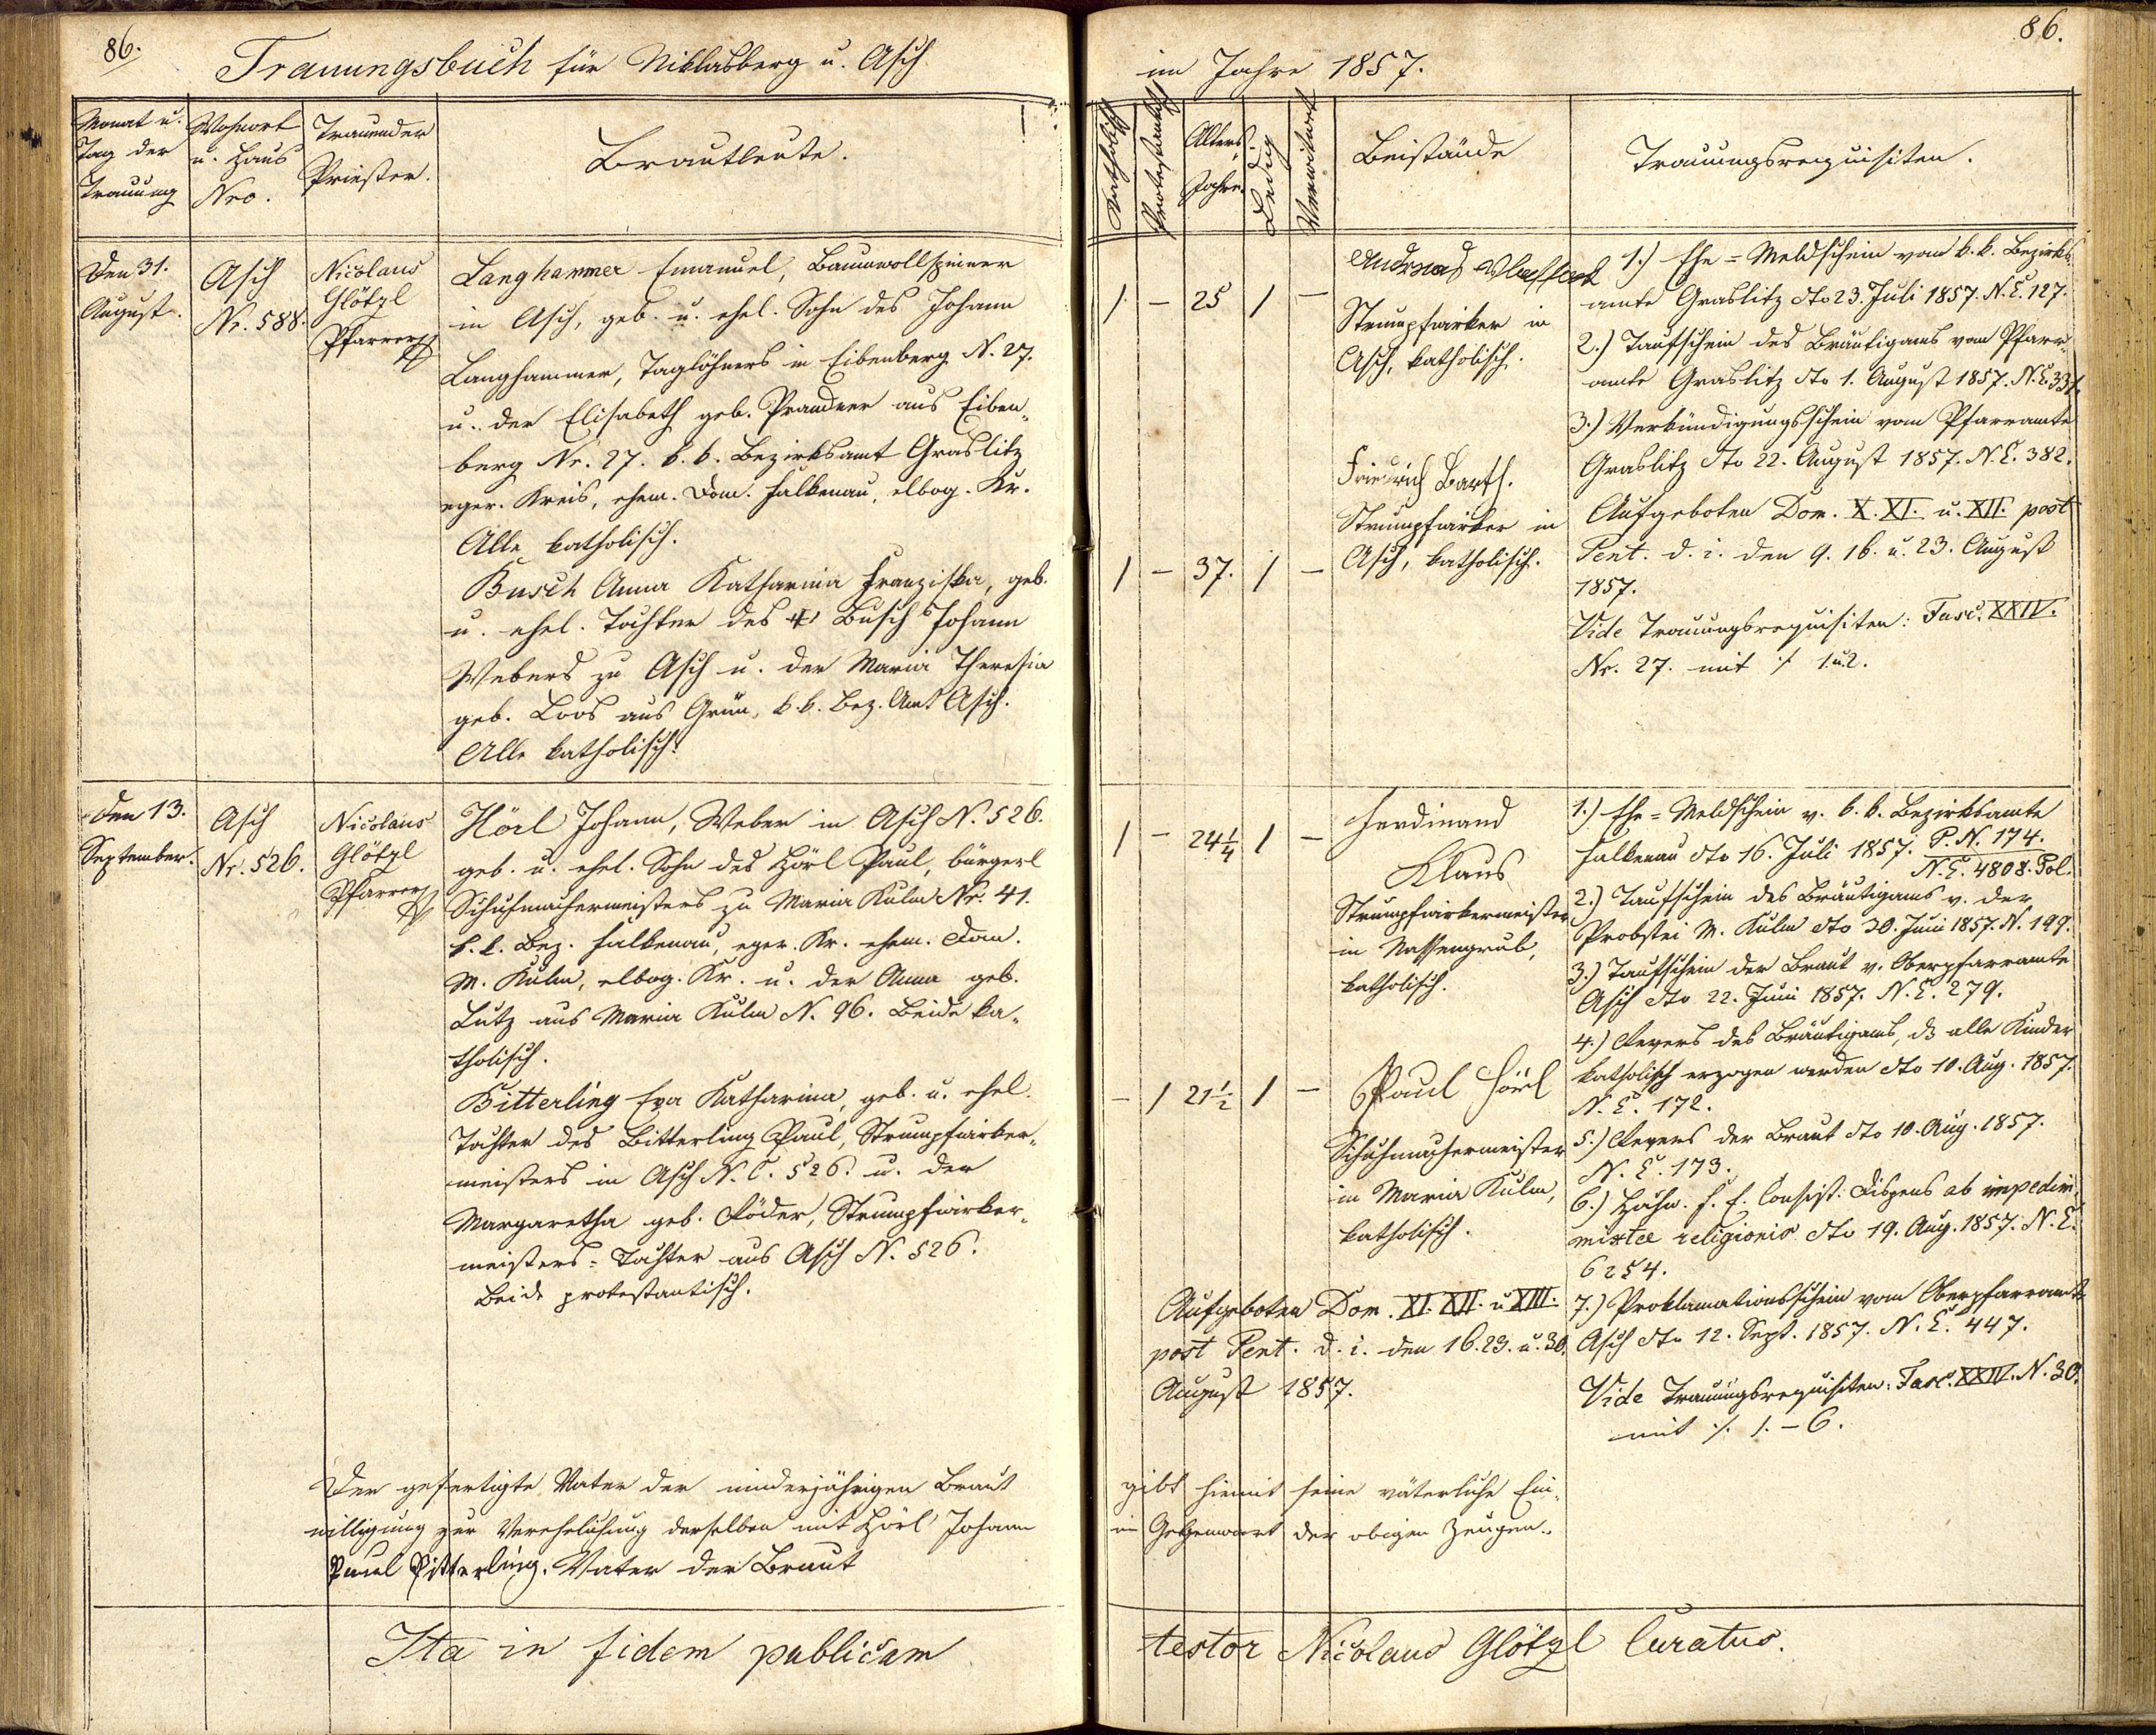 86.
Trauungsbuch für Niklasberg u. Asch
Monat u.
Tag der
Trauung
Wohnort
u. Haus
Nro.
Trauender
Priester.
Brautleute.
Den 31.
August.
Asch
Nr. 588.
Nicolaus
Glötzl
Pfarrer
Langhammer Emanuel, Baumwollspinner
in Asch, geb. u. ehel. Sohn des Johann
Langhammer, Taglöhners in Eibenberg N. 27.
u. der Elisabeth geb. Brandner aus Eiben-
berg Nr. 27. k. k. Bezirksamt Graslitz
eger. Kreis, ehem. Dom. Falkenau, elbog. Kr.
Alle katholisch.
Busch Anna Katharina Franziska, geb.
u. ehel. Tochter des Busch Johann
Webers zu Asch u. der Maria Theresia
geb. Loos aus Grün, k. k. Bez. Amt Asch.
Alle katholisch.
den 13.
September.
Asch
Nr. 526.
Nicolaus
Glötzl
Pfarrer
Hörl Johann, Weber in Asch N. 526.
geb. u. ehel. Sohn des Hörl Paul, bürgerl
Schuhmachermeisters zu Maria Kulm Nr. 41.
k. k. Bez. Falkenau, eger. Kr. ehem. Dom.
M. Kulm, elbog. Kr. u. der Anna geb.
Lutz aus Maria Kulm N. 96. Beide ka-
tholisch.
Bitterling Eva Katharina, geb. u. ehel.
Tochter des Bitterling Paul, Strumpfwirker-
meisters in Asch N. C. 526. u. der
Margaretha geb. Röder, Strumpfwirker-
meisters-Tochter aus Asch N. 526.
Beide protestantisch.
Der gefertigte Vater der minderjährigen Braut
willigung zur Verehelichung derselben mit Hörl Johann
Paul Pitterling, Vater der Braut
Ita in fidem publicam
86.
im Jahre 1857.
Katholisch
Protestantisch
Alters-
Jahre.
Ledig
Verwitwet
Beistände
Trauungsrequisiten.
1 - 25 1 -
Andreas
Strumpfwirker in
Asch, katholisch.
1 - 37. 1 -
Friedrich Barth.
Strumpfwirker in
Asch, katholisch.
1.) Ehe-Meldschein vom k. k. Bezirks-
amte Graslitz dto 23. Juli 1857. N. E. 127.
2.) Taufschein des Bräutigams vom Pfarr-
amte Graslitz dto 1. August 1857. N. E. 331.
3.) Verkündigungsschein vom Pfarramte
Graslitz dto 22. August 1857. N. E. 382.
Aufgeboten Dom. X. XI. u. XII. post
Pent. d. i. den 9. 16. u. 23. August
1857.
Vide Trauungsrequisiten: Fasc. XXIV.
Nr. 27. mit ./. 1 u. 2.
1 - 24 1/4 1 -
Ferdinand
Klaus
Strumpfwirkermeister
in Nassengrub,
katholisch.
- 1 21 1/2 1 -
Paul Hörl
Schuhmachermeister
in Maria Kulm,
katholisch.
Aufgeboten Dom. XI. XII. u. XIII.
post Pent. d. i. den 16. 23. u. 30.
August 1857.
1.) Ehe-Meldschein v. k. k. Bezirksamte
Falkenau dto 16. Juli 1857. P. N. 174.
N. E. 4808. Pol.
2.) Taufschein des Bräutigams v. der
Probstei M. Kulm dto 30. Juni 1857. N. 199.
3.) Taufschein der Braut v. Oberpfarramte
Asch dto 22. Juni 1857. N. E. 279.
4.) Revers des Bräutigams, dß alle Kinder
katholisch erzogen werden dto 10. Aug. 1857.
N. E. 172.
5.) Revers der Braut dto 10. Aug. 1857.
N. E. 173.
6.) Hochw. f. e. Consist. Dispens ab impedim.
mixtae religionis dto 19. Aug. 1857. N. E.
6254.
7.) Proklamationsschein vom Oberpfarramte
Asch dto 12. Sept. 1857. N. E. 447.
Vide Trauungsrequisiten: Fasc. XXIV. N. 30.
mit ./. 1. - 6.
gibt hiemit seine väterliche Ein-
in Gegenwart der obigen Zeugen.
testor Nicolaus Glötzl Curatus.